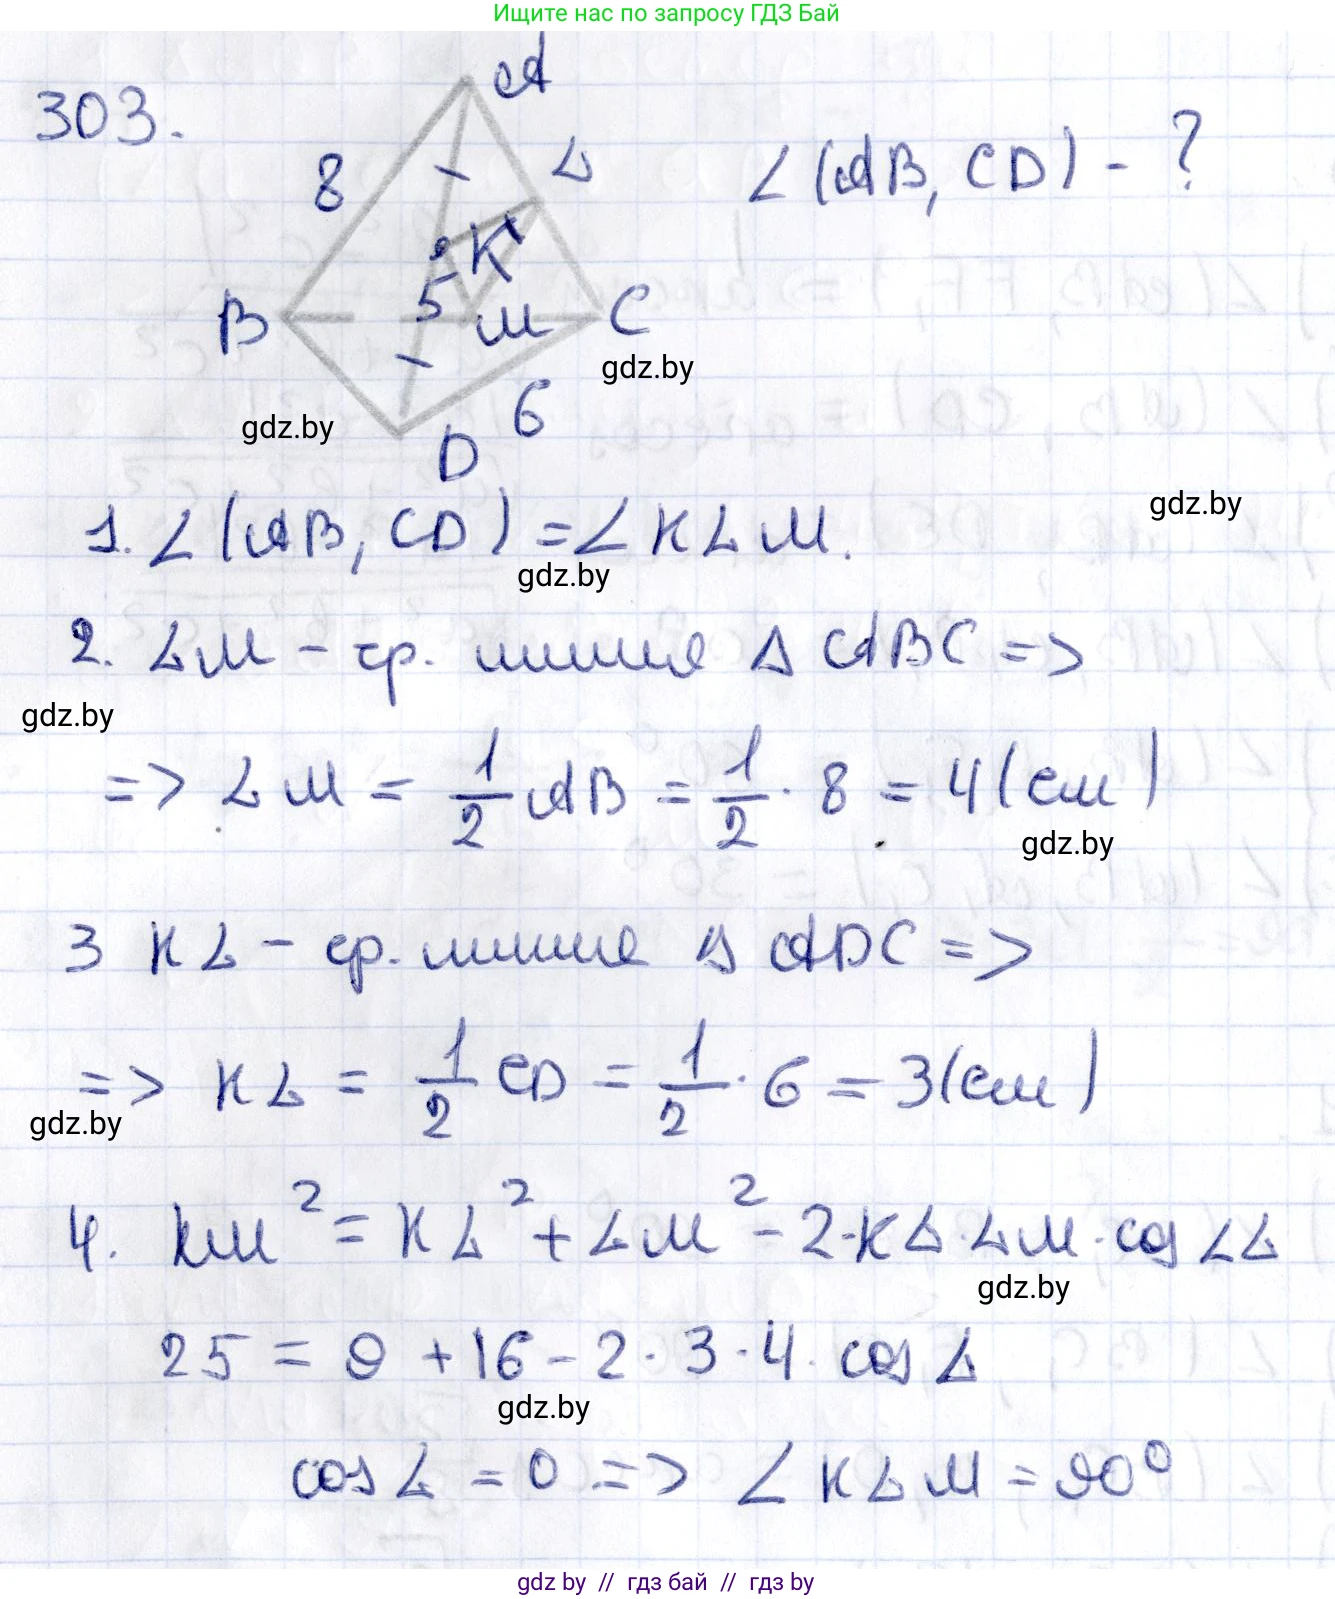 Ищите нас по запросу ГДЗ Бай
303.
A
8
L
∠(AB, CD) - ?
K
5
B
M
C
gdz.by
6
gdz.by
D
gdz.by
1. ∠(AB, CD) = ∠KLM.
gdz.by
2. LM - ср. линия Δ ABC =>
gdz.by
=> LM = 1/2 AB = 1/2 · 8 = 4 (см)
gdz.by
3 KL - ср. линия Δ ADC =>
=> KL = 1/2 CD = 1/2 · 6 = 3 (см)
gdz.by
4. KM² = KL² + LM² - 2·KL·LM·cos ∠L
gdz.by
25 = 9 + 16 - 2 · 3 · 4 · cos L
gdz.by
cos L = 0 => ∠KLM = 90°
gdz by // гдз бай // гдз by